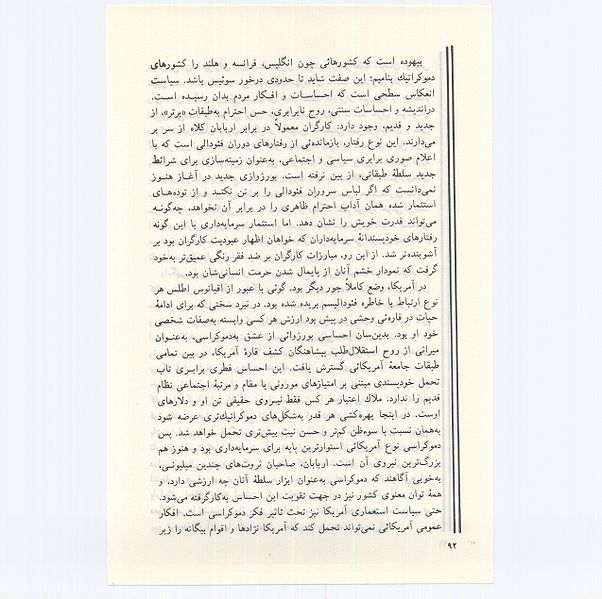 بیهوده است که کشورهائی چون انگلیس، فرانسه و هلند را کشورهای
دموکراتیك بنامیم؛ این صفت شاید تا حدودی درخور سوئیس باشد. سیاست
انعکاس سطحی است که احساسات و افکار مردم بدان رسیده است.
دراندیشه و احساسات سنتی، روح نابرابری، حس احترام به‌طبقات «برتر»، از
جدید و قدیم، وجود دارد: کارگران معمولاً در برابر اربابان کلاه از سر بر
می‌دارند. این نوع رفتار، بازمانده‌ئی از رفتارهای دوران فئودالی است که با
اعلام صوری برابری سیاسی و اجتماعی، به‌عنوان زمینه‌سازی برای شرائط
جدید سلطهٔ طبقاتی، از بین نرفته است. بورژوازی جدید در آغاز هنوز
نمی‌دانست که اگر لباس سروران فئودالی را بر تن نکند و از توده‌های
استثمار شده همان آداب احترام ظاهری را در برابر آن نخواهد، چه‌گونه
می‌تواند قدرت خویش را نشان دهد. اما استثمار سرمایه‌داری با این گونه
رفتارهای خودپسندانهٔ سرمایه‌داران که خواهان اظهار عبودیت کارگران بود بر
آشوبنده‌تر شد. از این رو، مبارزات کارگران بر ضد فقر رنگی عمیق‌تر به‌خود
گرفت که نمودار خشم آنان از پایمال شدن حرمت انسانی‌شان بود.
در آمریکا، وضع کاملاً جور دیگر بود. گوئی با عبور از اقیانوس اطلس هر
نوع ارتباط با خاطره فئودالیسم بریده شده بود. در نبرد سختی که برای ادامهٔ
حیات در قاره‌ئی وحشی در پیش بود ارزش هر کسی وابسته به‌صفات شخصی
خود او بود. بدین‌سان احساسی بورژوائی از عشق به‌دموکراسی، به‌عنوان
میراثی از روح استقلال‌طلب پیشاهنگان کشف قارهٔ آمریکا، در بین تمامی
طبقات جامعهٔ آمریکائی گسترش یافت. این احساس فطری برابری تاب
تحمل خودپسندی مبتنی بر امتیازهای موروثی یا مقام و مرتبهٔ اجتماعی نظام
قدیم را ندارد. ملاك اعتبار هر کس فقط نیروی حقیقی تن او و دلارهای
اوست. در اینجا بهره‌کشی هر قدر به‌شکل‌های دموکراتیك‌تری عرضه شود
به‌همان نسبت با سوءظن کم‌تر و حسن نیت بیش‌تری تحمل خواهد شد. پس
دموکراسی نوع آمریکائی استوارترین پایه برای سرمایه‌داری بود و هنوز هم
بزرگ‌ترین نیروی آن است. اربابان، صاحبان ثروت‌های چندین میلیونی،
به‌خوبی آگاهند که دموکراسی به‌عنوان ابزار سلطهٔ آنان چه ارزشی دارد، و
همهٔ توان معنوی کشور نیز در جهت تقویت این احساس به‌کارگرفته می‌شود.
حتی سیاست استعماری آمریکا نیز تحت تاثیر فکر دموکراسی است. افکار
عمومی آمریکائی نمی‌تواند تحمل کند که آمریکا نژادها و اقوام بیگانه را زیر
۹۲